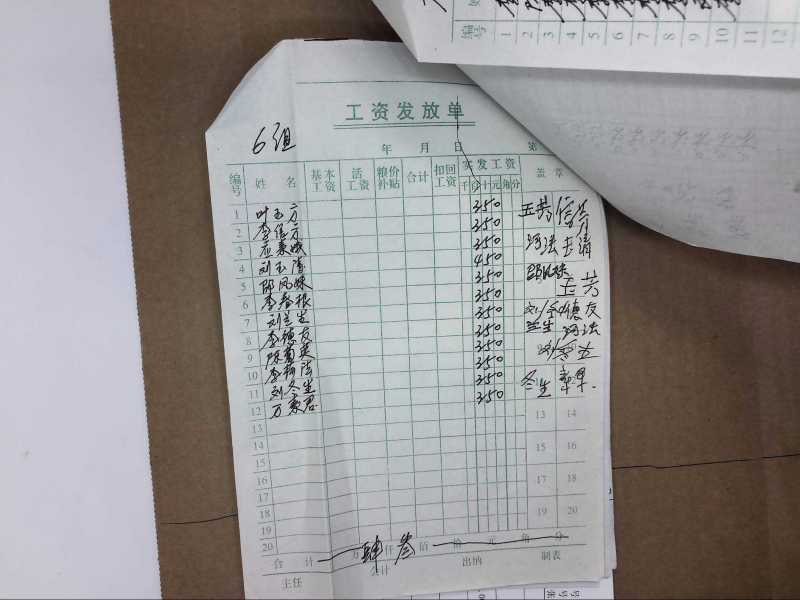 编号 1 2 3 4 5 6 7 8 9 10 11 12
工资发放单
6组
年 月 日 第
编号 姓名 基本工资 活工资 粮价补贴 合计 扣回工资 实发工资 千百十元角分 盖章
1 叶玉方 350 玉芳 信芳
2 李信方 350
3 应秉娥 350 河法 玉清
4 刘玉清 450
5 邵凤妹 350 邵凤妹
6 李春根 350 玉芳
7 刘兰生 350 刘 德友
8 李德友 350 兰生 河法
9 陈菊英 350
10 李 法 350
11 刘冬生 350 冬生
12 万秉君 350
13 13 14
14
15 15 16
16
17 17 18
18
19 19 20
20
合计 万 肆仟 叁佰 拾 元 角 分
主任 会计 出纳 制表